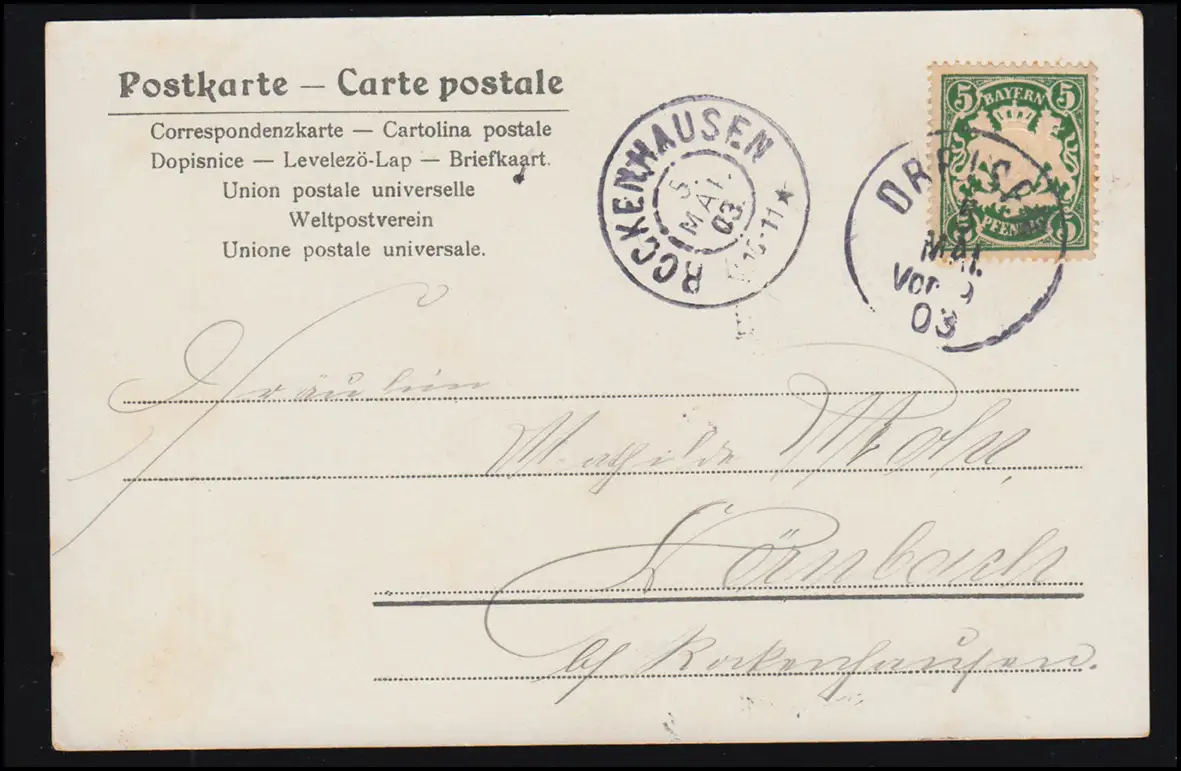 Postkarte — Carte postale
Correspondenzkarte — Cartolina postale
Dopisnice — Levelezö-Lap — Briefkaart.
Union postale universelle
Weltpostverein
Unione postale universale.
ROCKENHAUSEN
5
MAI.
03.
10-11
5 BAYERN 5
5 PFENNIG 5
MAI.
Vor
03
Fräulein
Mathilde
bach
b/ Rockenhausen.